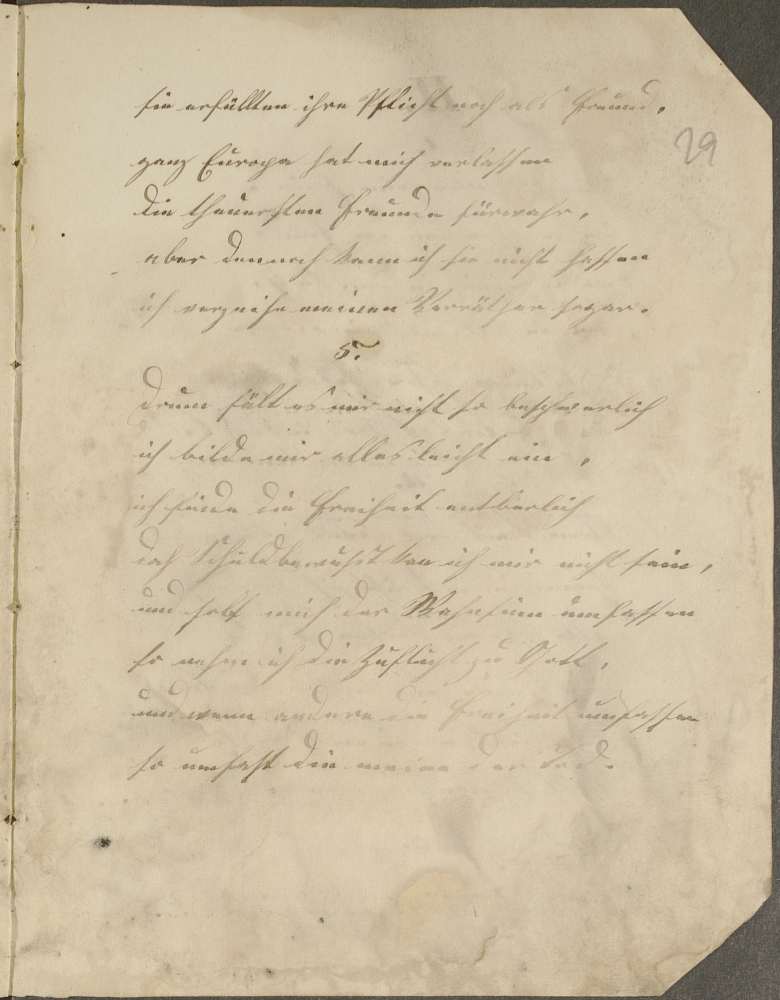 sie erfüllten ihre Pflicht noch als Freund.
29
ganz Europa hat mich verlassen
die theuersten Freunde fürwahr,
aber dennoch kann ich sie nicht hassen
ich verzeihe meinen Verräther sogar.
5.
Drum fält es mir nicht so beschwerlich
ich bilde mir alles leicht ein,
ich finde die Freiheit entberlich
doch Schuldbewußt kan ich mir nicht sein,
und soll mich der Wahnsinn umfassen
so nehm ich die Zuflucht zu Gott,
und wenn andere die Freiheit umfassen
so umfast die meine der Tod.